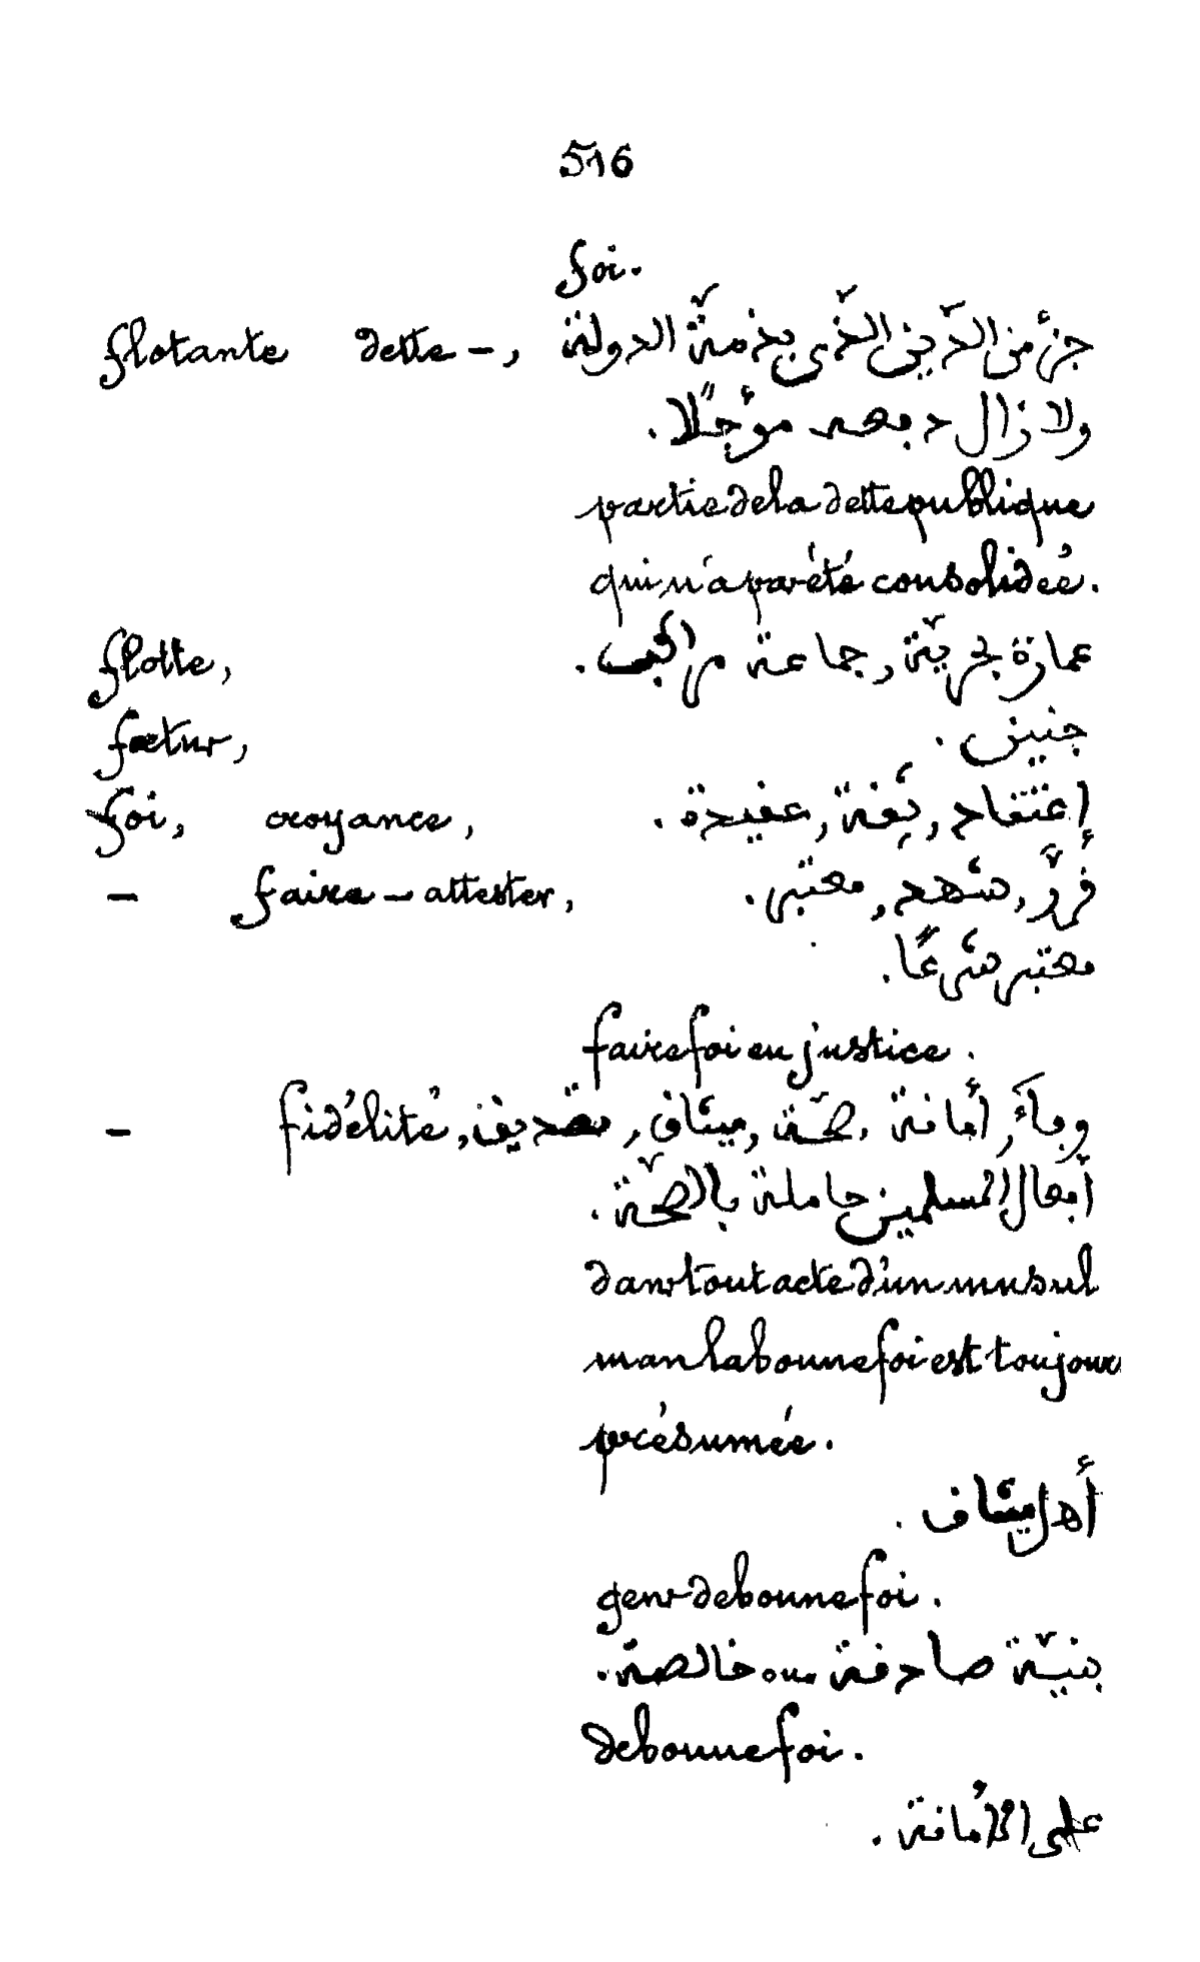 516
foi.
flotante dette –, جزء من الدّين الذّي بذمّة الدولة
ولا زال دفعه مؤجّلًا.
partie de la dette publique
qui n'a pas été consolidée.
flotte, عمارة بحريّة, جماعة مراكب.
fœtus, جنين.
foi, croyance, إعتقاد, ثِقة, عقيدة.
– faire – attester, قرّر, شهد, معتبر.
معتبر شرعًا.
faire foi en justice.
– fidélité, وفاءَ, أمانة, صحّة, ميثاق, تصديق
أفعال المسلمين حاملة بالصحّة.
dans tout acte d'un musul
man la bonne foi est toujours
présumée.
أهل ميثاق.
gens de bonne foi.
بنيّة صادقة ou خالصة.
de bonne foi.
على الأمانة.